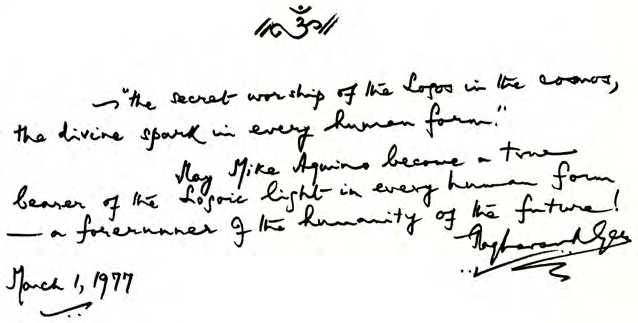 ॐ
"the secret worship of the Logos in the cosmos,
the divine spark in every human form."
May Mike Aquino become a true
bearer of the Logoic light in every human form
— a forerunner of the humanity of the future!
Raghavan Iyer
March 1, 1977